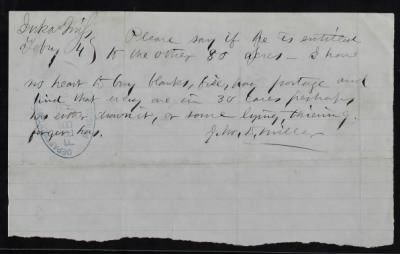 Iuka Miss
Feby 4 } Please say if he is entitled
to the other 80 acres - I have
no heart to buy blanks, bill, pay postage and
find that every one in 30 cases perhaps
has ever drawn it, or some lying, thieving
forger has.
Jno. D. Miller